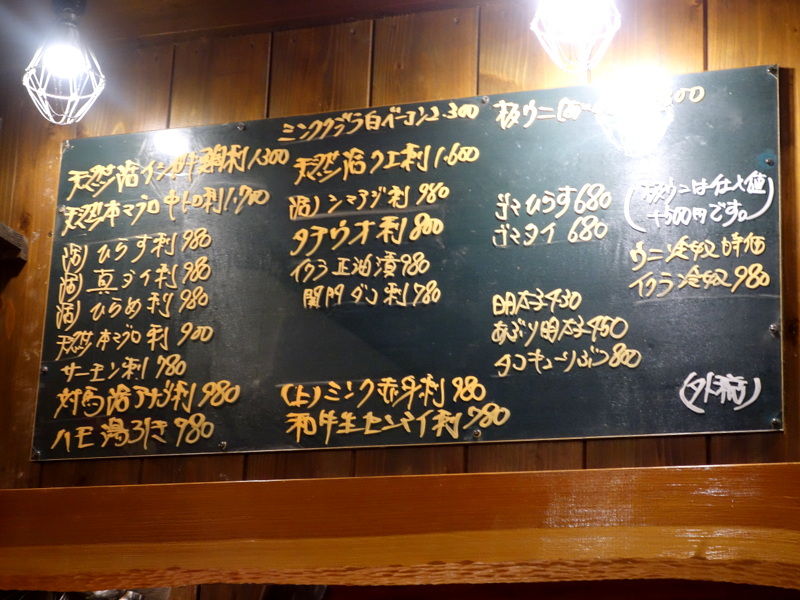 ミンククジラ白ベーコン 2.300
板ウニ
天然活イシガキ鯛刺 1.300
天然本マグロ中トロ刺 1.700
活〉ひらす刺 980
活〉真ダイ刺 980
活〉ひらめ刺 980
天然本マグロ刺 900
サーモン刺 780
対馬活アナゴ刺 980
ハモ湯びき 980
天然活クエ刺 1.600
活〉シマアジ刺 980
タチウオ刺 800
イクラ正油漬 980
関門ダコ刺 780
(上)ミンク赤身刺 980
和牛生センマイ刺 780
ゴマひらす 680
ゴマタイ 680
明太子 430
あぶり明太子 450
タコキューリぶつ 800
(板ウニは仕入値
+500円です。)
ウニ冷奴 時価
イクラ冷奴 980